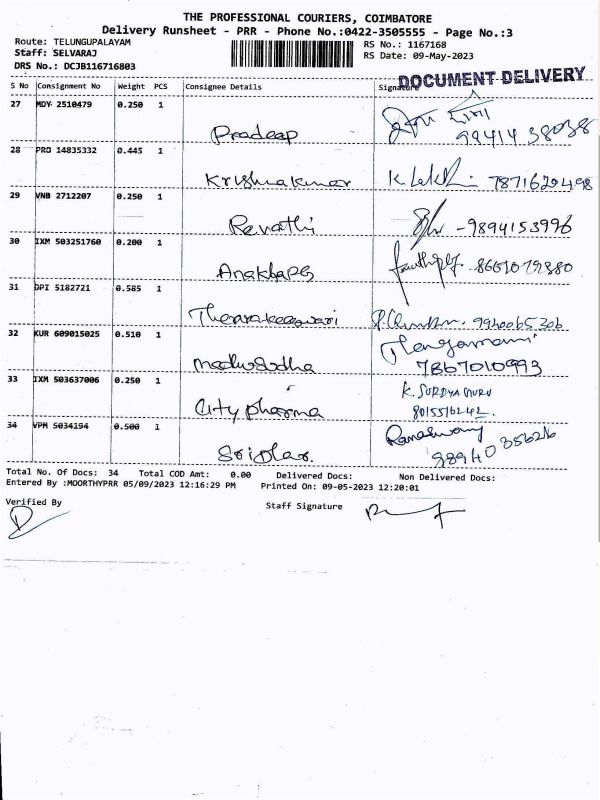 THE PROFESSIONAL COURIERS, COIMBATORE
Delivery Runsheet - PRR - Phone No.:0422-3505555 - Page No.:3
Route: TELUNGUPALAYAM
Staff: SELVARAJ
DRS No.: DCJB116716803
RS No.: 1167168
RS Date: 09-May-2023
DOCUMENT DELIVERY
S No Consignment No Weight PCS Consignee Details Signature
27 MDY 2510479 0.250 1
Pradeep 9941438038
28 PRO 14835332 0.445 1
Krishnakumar 7871620498
29 VNB 2712207 0.250 1
Revathi -9894153996
30 IXM 503251760 0.200 1
8661079880
31 DPI 5182721 0.585 1
32 KUR 609015025 0.510 1
Madhusudha 7867010993
33 IXM 503637006 0.250 1
City pharma 8015516242.
34 VPM 5034194 0.500 1
Sridhar. Ramaswamy
Total No. Of Docs: 34 Total COD Amt: 0.00 Delivered Docs: Non Delivered Docs:
Entered By :MOORTHYPRR 05/09/2023 12:16:29 PM Printed On: 09-05-2023 12:20:01
Verified By Staff Signature